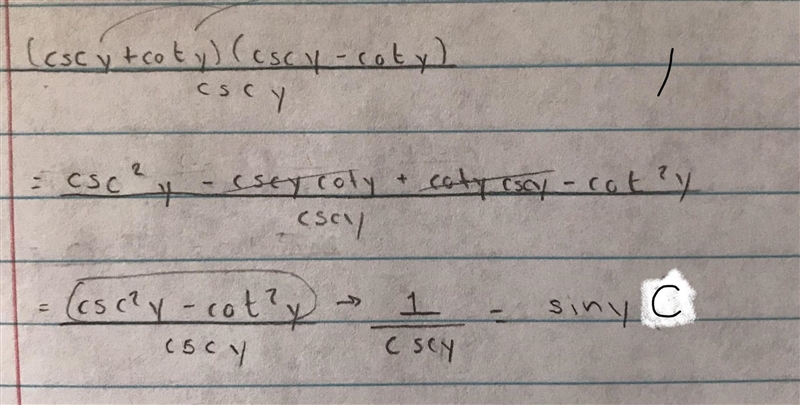 (csc y + cot y)(csc y - cot y)
csc y
= csc² y - csc y cot y + cot y csc y - cot² y
csc y
= (csc² y - cot² y) → 1 = sin y C
csc y csc y